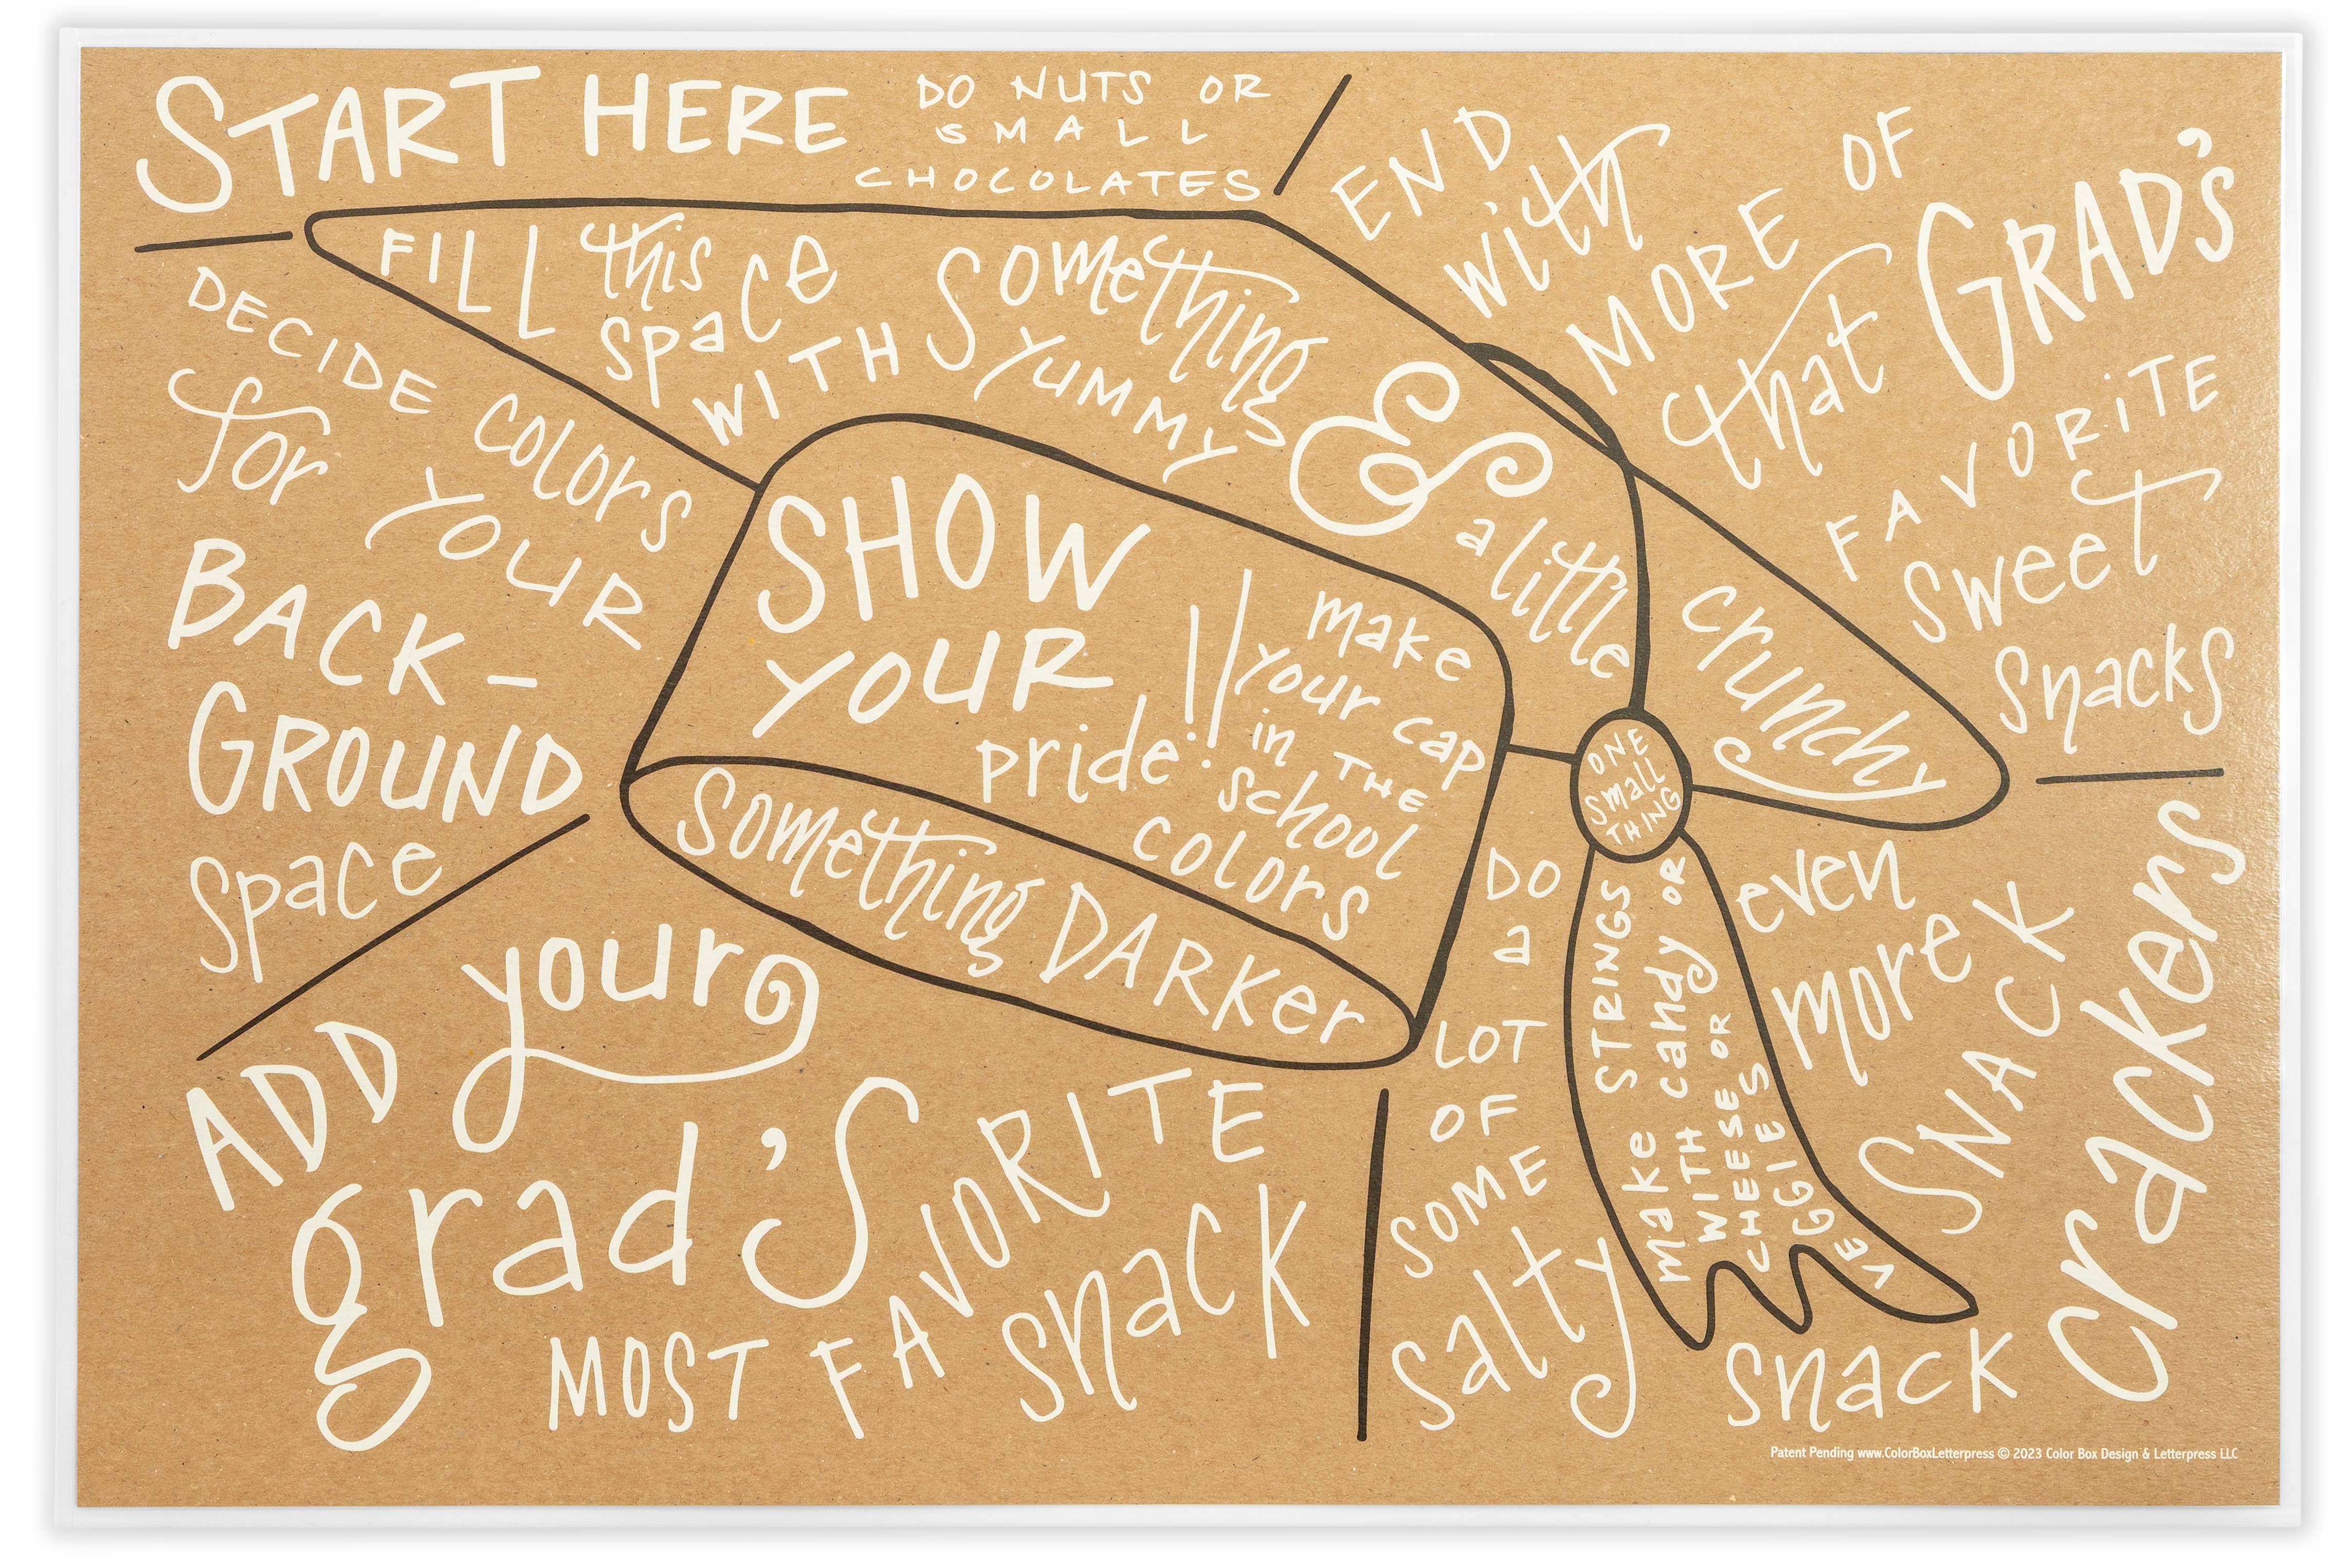 START HERE
DO NUTS OR
SMALL
CHOCOLATES
FILL this
space
WITH Something
YUMMY
&
a little
crunchy
END
with
MORE OF
that GRAD's
FAVORITE
sweet
snacks
DECIDE colors
for YOUR
BACK-
GROUND
space
SHOW
YOUR
pride!!
make
your cap
in THE
school
colors
Something DARKer
ONE
small
THING
make STRINGS
WITH candy OR
CHEESE OR
VEGGIES
ADD your
grad's
MOST FAVORITE
snack
DO
a
LOT
OF
SOME
salty
snack
even
more
SNACK
crackers
Patent Pending www.ColorBoxLetterpress © 2023 Color Box Design & Letterpress LLC